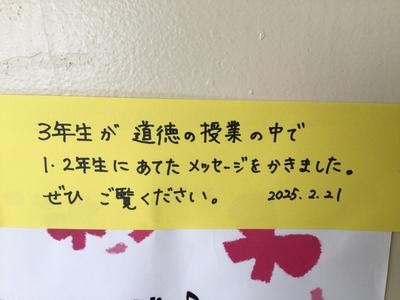 3年生が 道徳の授業の中で
1・2年生に あてた メッセージをかきました。
ぜひ ご覧ください。 2025.2.21